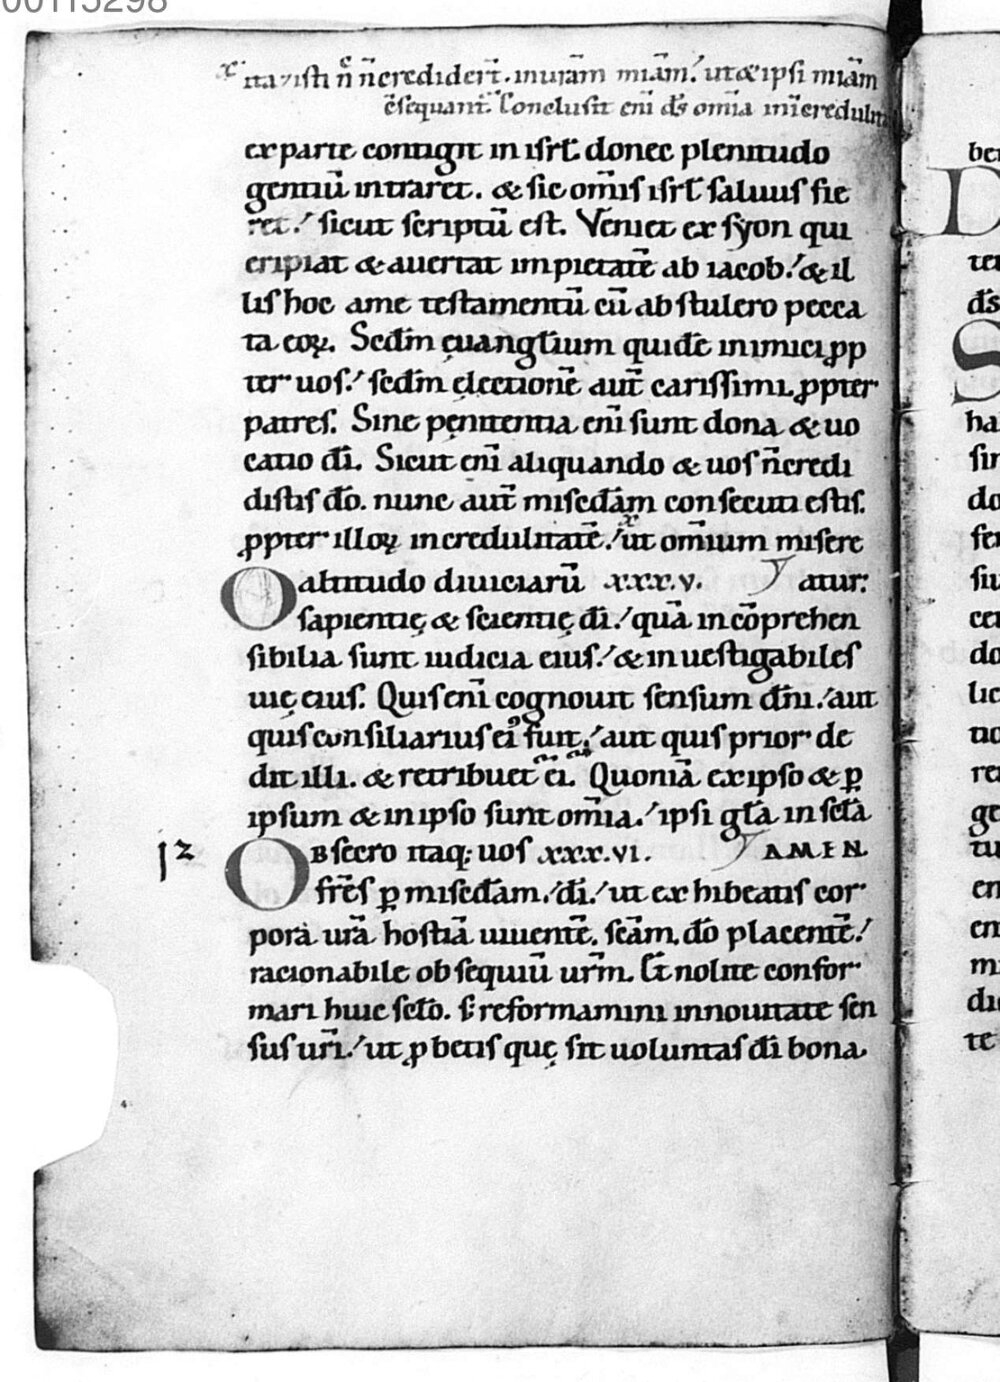 00115298
ita ⁊ isti n̄ c̄ n̄credider̄t. in ur̄am mīam. ut & ipsi mīam
c̄sequant̄. Conclusit eni d̄s om̄ia in incredulit
ex parte contigit in isrl̄ donec plenitudo
gentiū intraret. & sic om̄is isrl̄ saluus fie
ret. sicut scriptū est. Veniet ex syon qui
eripiat & auertat impietatē ab iacob. & il
lis hoc a me testamentū cū abstulero pecca
ta eoꝝ. Sedm̄ ęuangl̄ium quidē inimici ꝓp
ter uos. sedm̄ electionē aut̄ carissimi ꝓpter
patres. Sine pęnitentia eni sunt dona & uo
catio dī. Sicut eni aliquando & uos n̄credi
distis dō. nunc aut̄ miscd̄am consecuti estis.
ꝓpter illoꝝ incredulitatē. ut om̄ium misere
O altitudo diuiciarū xxx.v. atur:
sapientię & scientię dī. quā incōprehen
sibilia sunt iudicia eius. & inuestigabiles
uię eius. Quis eni cognouit sensum dn̄i. aut
quis consiliarius ei fuit. aut quis prior de
dit illi. & retribuet ei. Quoniā ex ipso & ꝑ
ipsum & in ipso sunt om̄ia. ipsi gl̄a in scl̄a
12 OBsecro itaq; uos xxx.vi. AMEN.
fr̄es ꝑ miscd̄am. dī. ut exhibeatis cor
pora ur̄a hostiā uiuentē. sc̄am. dō placentē.
racionabile obsequiū ur̄m. Et nolite confor
mari huic scl̄o. s; reformamini in nouitate sen
sus ur̄i. ut ꝓbetis quę sit uoluntas dī bona